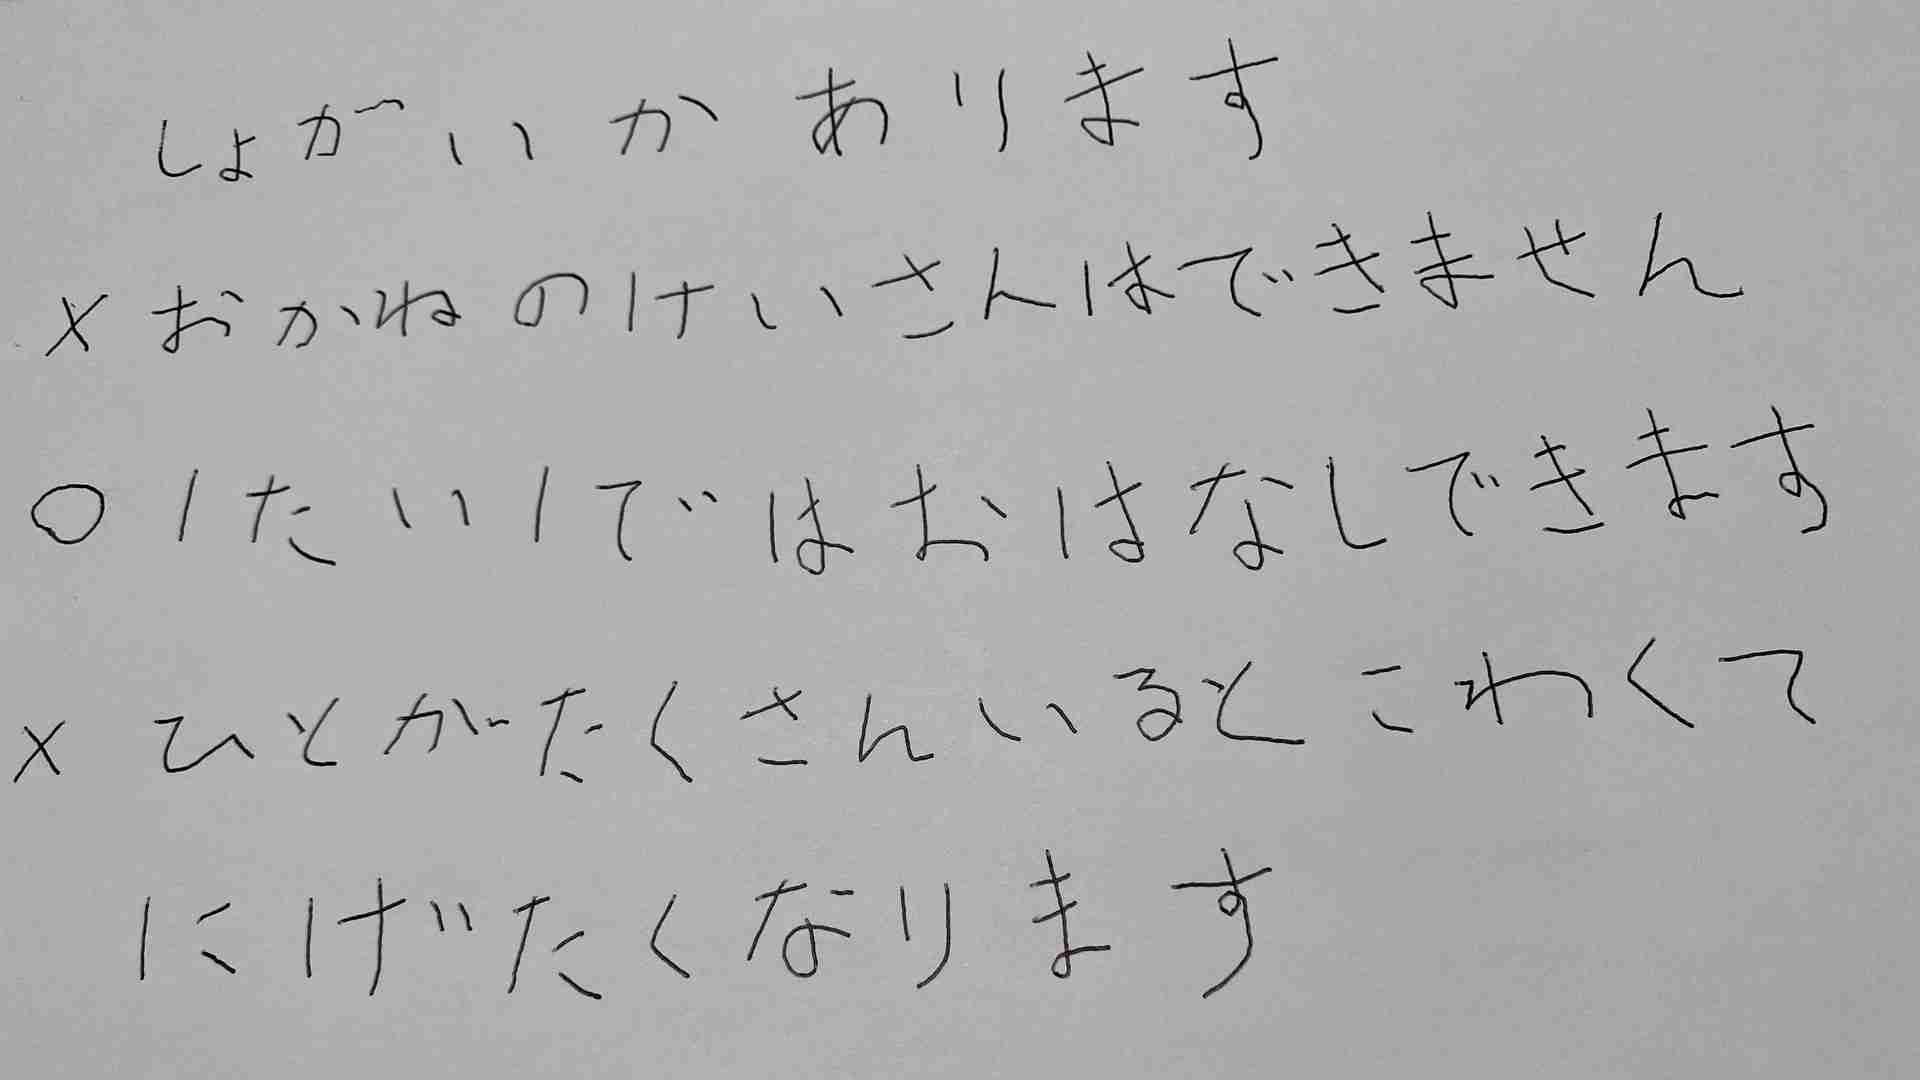 しょがいかあります
× おかねのけいさんはできません
○ 1たい1ではおはなしできます
× ひとがたくさんいるとこわくて
にげたくなります